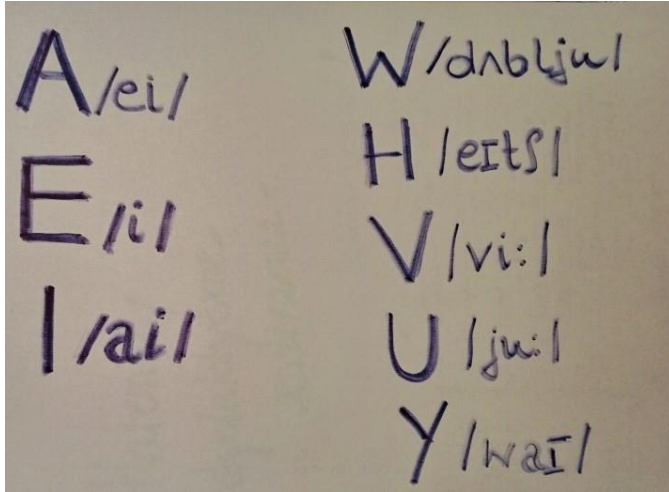 A /ei/
E /i/
I /ai/
W /dʌblju/
H /eɪtʃ/
V /vi:/
U /ju:/
Y /waɪ/